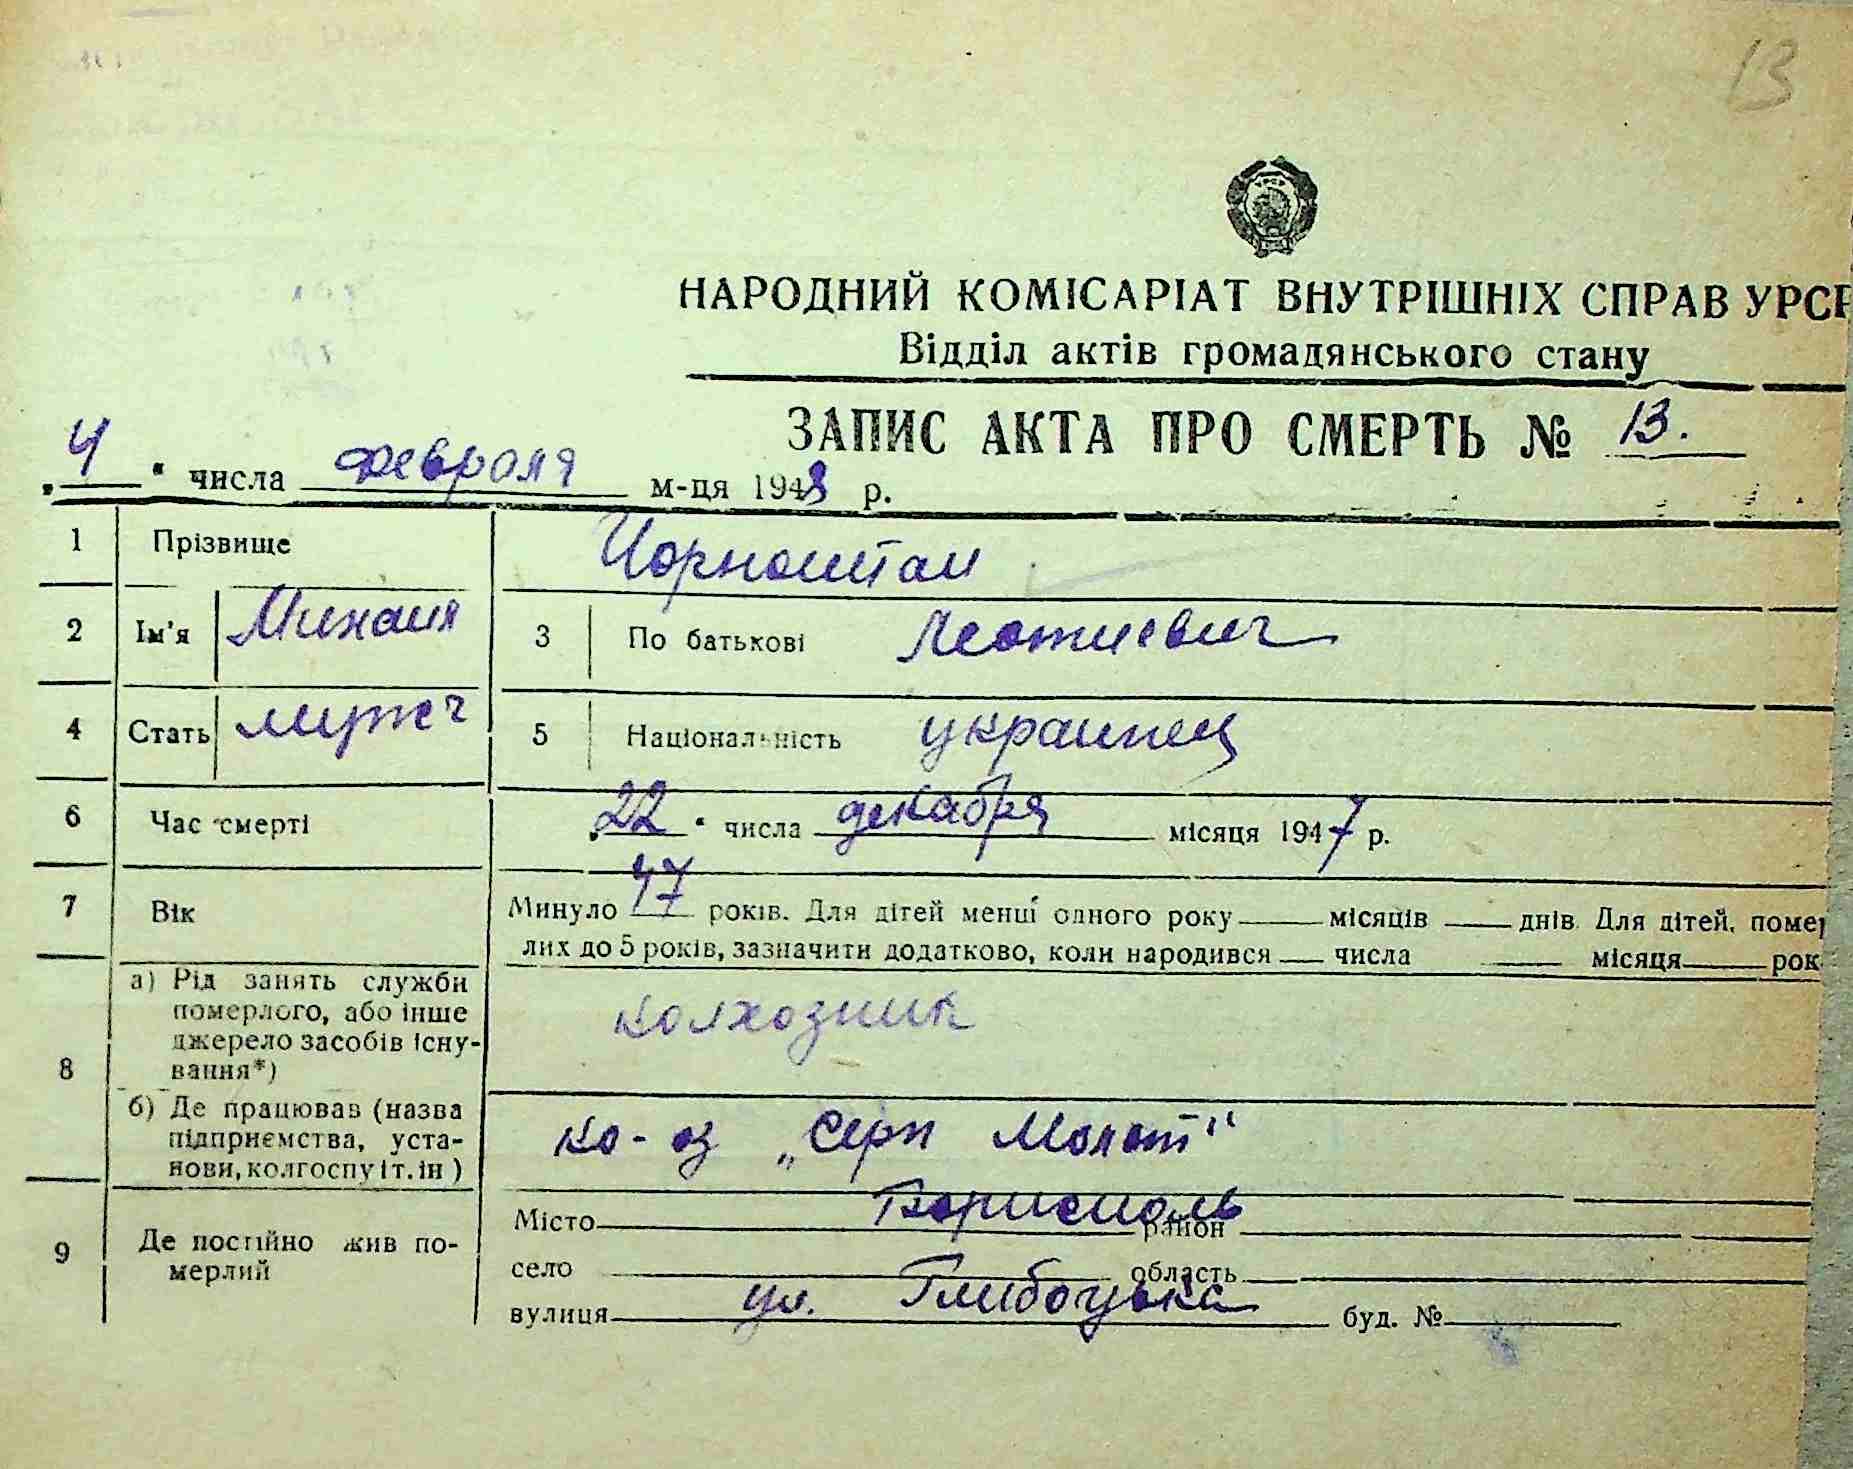 13
НАРОДНИЙ КОМІСАРІАТ ВНУТРІШНІХ СПРАВ УРСР
Відділ актів громадянського стану
ЗАПИС АКТА ПРО СМЕРТЬ № 13.
„4“ числа февроля м-ця 1948 р.
1 Прізвище Чорноштан
2 Ім'я Михаил 3 По батькові Леотиевич
4 Стать мужч 5 Національність украинец
6 Час смерті „22“ числа декабря місяця 1947 р.
7 Вік Минуло 47 років. Для дітей менші одного року місяців днів. Для дітей, помер
лих до 5 років, зазначити додатково, коли народився числа місяця рок
8 а) Рід занять служби
померлого, або інше
джерело засобів існу-
вання*) колхозник
б) Де працював (назва
підприємства, уста-
нови, колгоспу і т. ін) ко-оз „Серп Молот"
9 Де постійно жив по-
мерлий
Місто Бориспол‍ь район
село область
вулиця ул. Глибоцька буд. №